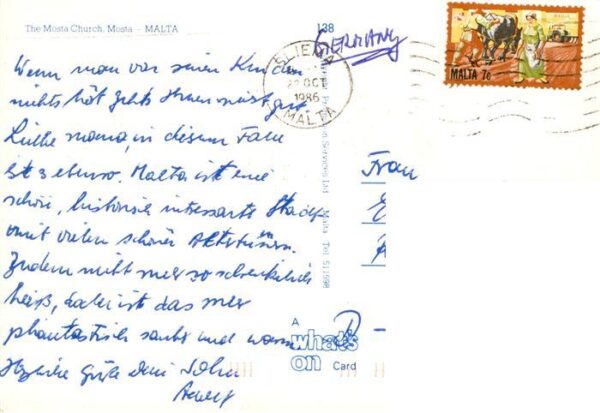 The Mosta Church, Mosta — MALTA
138
GERMANY
SLIEMA
22 OCT
1986
MALTA
MALTA 7c
Wenn man von seinen Kindern
nichts hört gehts Ihnen meist gut.
Liebe Mama, in diesem Falle
ist es ebenso. Malta ist eine
schöne, historisch interessante Stadt
mit vielen schönen
Zudem nicht mehr so schrecklich
heiß, dafür ist das Meer
phantastisch sauber und warm
Herzliche Grüße Dein Sohn
Frau
Services Ltd Malta Tel. 511598
A
what's
on Card